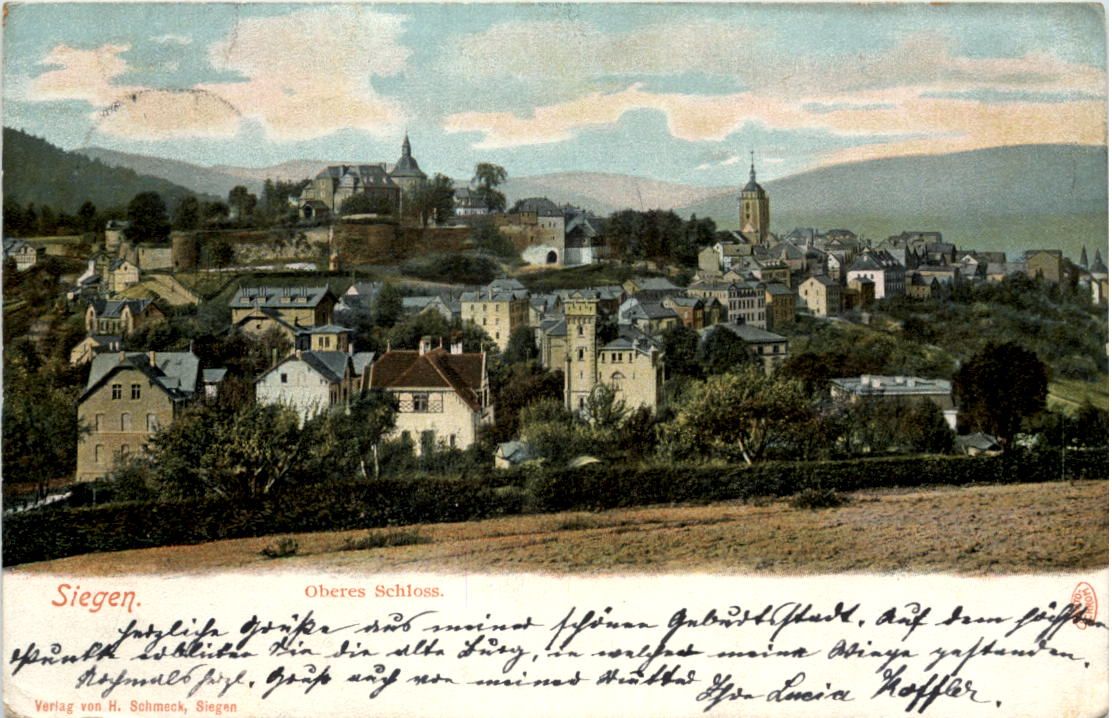 Siegen.
Oberes Schloss.
herzliche Grüße aus meiner schönen Geburtsstadt. Auf dem höchsten
Punkte erblicken Sie die alte Burg, in welcher meine Wiege gestanden.
Nochmals herzl. Gruß auch von meiner Mutter Ihre Lucia Hoffler.
Verlag von H. Schmeck, Siegen